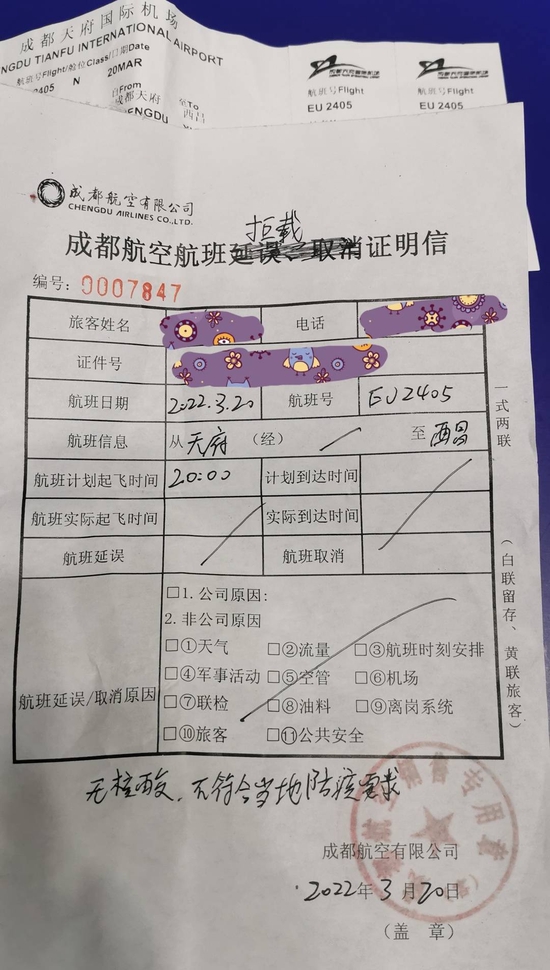 成都天府国际机场
NGDU TIANFU INTERNATIONAL AIRPORT
航班号Flight/舱位Class/日期Date
2405 N 20MAR
自From 至To
成都天府 西昌
ENGDU
航班号Flight
EU 2405
航班号Flight
EU 2405
成都航空有限公司
CHENGDU AIRLINES CO.,LTD.
拒载
成都航空航班延误、取消证明信
编号: 0007847
旅客姓名 电话
证件号
航班日期 2022.3.20 航班号 EU2405
航班信息 从 天府 (经) 至 西昌
航班计划起飞时间 20:00 计划到达时间
航班实际起飞时间 实际到达时间
航班延误 航班取消
航班延误/取消原因
□1. 公司原因:
2. 非公司原因
□①天气 □②流量 □③航班时刻安排
□④军事活动 □⑤空管 □⑥机场
□⑦联检 □⑧油料 □⑨离岗系统
□⑩旅客 □⑪公共安全
一式两联
(白联留存、黄联旅客)
无核酸、不符合当地防疫要求
成都航空有限公司
2022年3月20日
(盖 章)
专用章